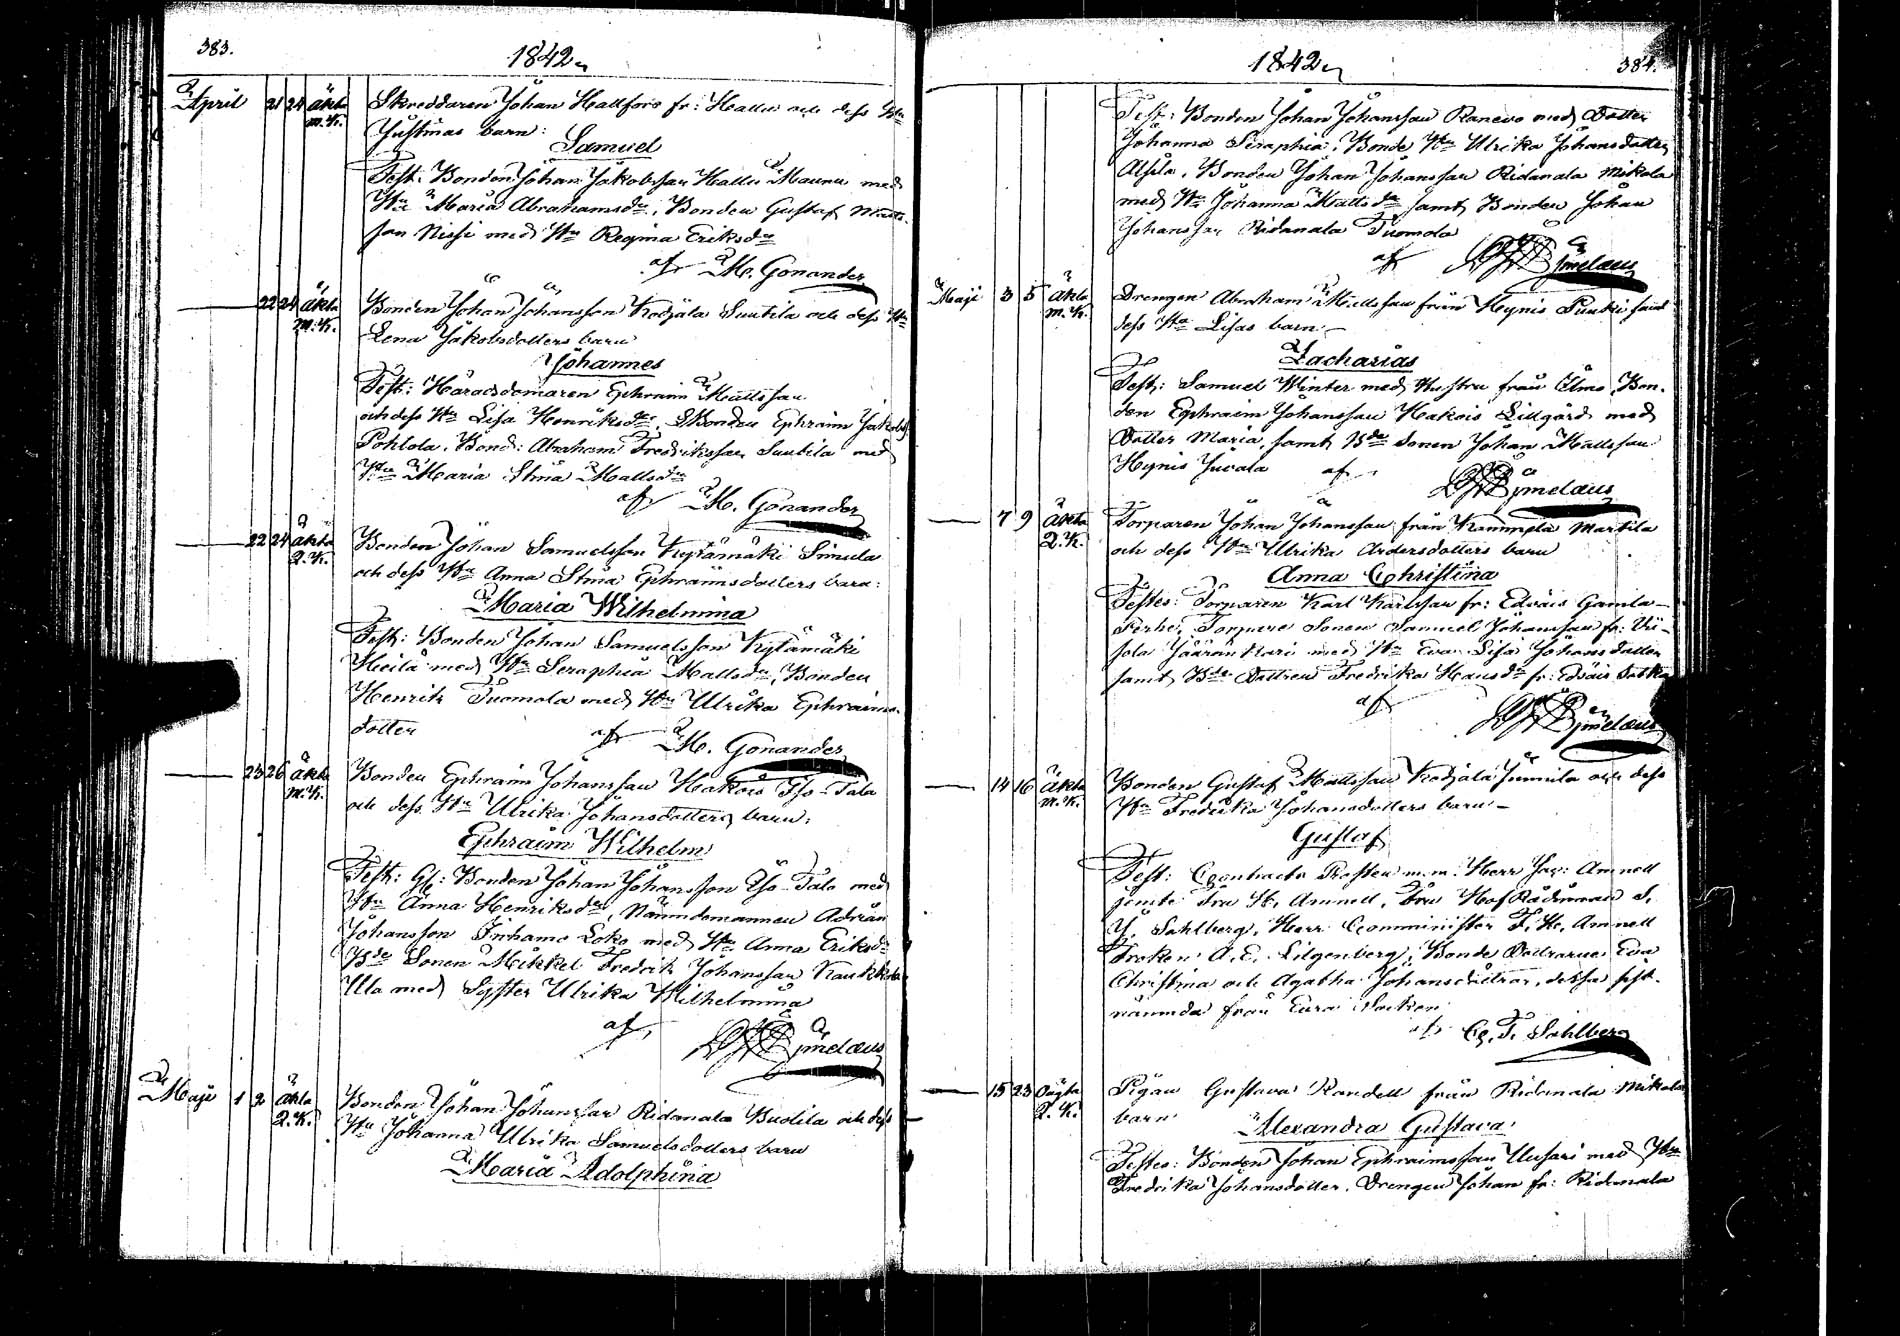 383.
1842
April 21 24 äkta Skreddaren Johan Hallfors fr: Hallu och dess Hu
m.K. Justinas barn:
Samuel
Test: Bonden Johan Jakobsson Hallu Maunu med
Hu Maria Abrahamsdr, Bonden Gustaf Matts-
son Nissi med Hu Regina Eriksdr
af M. Gonander
22 24 äkta Bonden Johan Johansson Kodjala Suutila och dess Hu
m.K. Lena Jakobsdotters barn
Johannes
Test: Häradsdomaren Ephraim Mattsson
och dess Hu Lisa Henriksdr, Bonden Ephraim Jakobss
Pohlola, Bond: Abraham Fredriksson Suutila med
Hu Maria Stina Mattsdr
af M. Gonander
22 24 äkta Bonden Johan Samuelsson Kylämäki Simula
Q.K. och dess Hu Anna Stina Ephraimsdotters barn:
Maria Wilhelmina
Test: Bonden Johan Samuelsson Kylämäki
Heilä med Hu Seraphia Mattsdr, Bonden
Henrik Tuomola med Hu Ulrika Ephraims-
dotter af M. Gonander
23 26 äkta Bonden Ephraim Johansson Hakois Iso-Talo
m.K. och dess Hu Ulrika Johansdotters barn:
Ephraim Wilhelm
Test: Gl: Bonden Johan Johansson Iso-Talo med
Hu Anna Henriksdr, Nämndemannen Adrian
Johansson Inhamo Loko med Hu Anna Eriksdr
Bde Sonen Mikkel Fredrik Johansson Kaukkola
Ulla med Syster Ulrika Wilhelmina
af
Maji 1 2 äkta Bonden Johan Johansson Ridanala Budila och dess
Q.K. Hu Johanna Ulrika Samuelsdotters barn
Maria Adolphina
1842
384.
Test: Bonden Johan Johansson Ranevo med Dotter
Johanna Seraphia, Bonde Hu Ulrika Johansdotter
Alsila, Bonden Johan Johansson Ridanala Mikola
med Hu Johanna Mattsdr samt Bonden Johan
Johansson Ridanala Tuomola
af
Maji 3 5 äkta Drengen Abraham Mattsson från Heynis Puukki samt
m.K. dess Hu Lisas barn
Zacharias
Test: Samuel Winter med Hustru från Elmo, Bon-
den Ephraim Johansson Hakois Lillgård med
Dotter Maria, samt Bde Sonen Johan Mattsson
Heynis Juvala af
7 9 äkta Torparen Johan Johansson från Kammela Martila
Q.K. och dess Hu Ulrika Andersdotters barn
Anna Christina
Testes: Torparen Karl Karlsson fr: Edväis Gamla-
Perhe, Torpare Sonen Samuel Johansson fr: Vii-
sola Jäärän Kari med Hu Eva Lisa Johansdotter
samt Bde Dottren Fredrika Hansdr fr: Edväis
af
14 16 äkta Bonden Gustaf Mattsson Kodjala Junnila och dess
m.K. Hu Fredrika Johansdotters barn
Gustaf
Test: Contracts Prosten m.m. Herr Jac: Amnell
jemte Fru H. Amnell, Fru HofRådinnan S.
Y. Sahlberg, Herr Comminister F. H. Amnell
Fröken A. E. Lilgenberg, Bonde Döttrarne Eva
Christina och Agatha Johansdöttrar, dessa sist-
nämnda från Eura Socken
af C. F. Sahlberg
15 23 Oägta Pigan Gustava Randell från Ridanala Mikola
Q.K. barn
Alexandra Gustava
Testes: Bonden Johan Ephraimsson Uusari med Hu
Fredrika Johansdotter, Drengen Johan fr: Ridanala